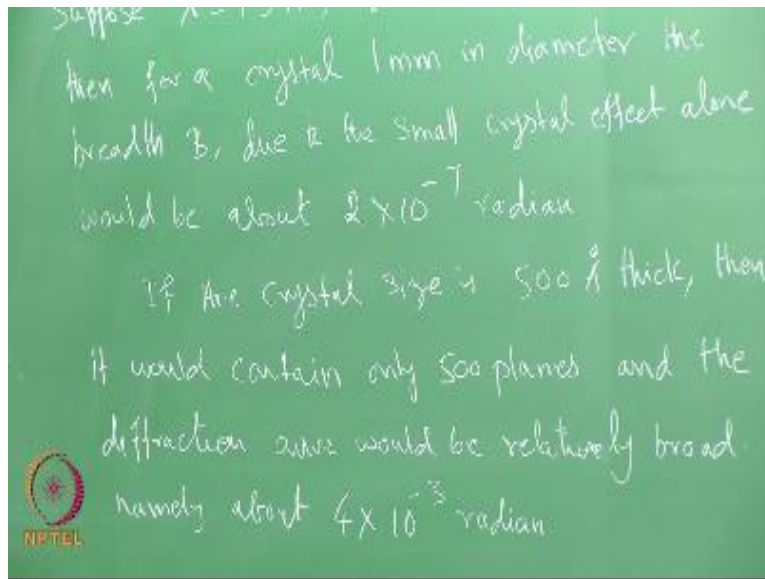 Suppose λ = 1.5
then for a crystal 1mm in diameter the
breadth B, due to the small crystal effect alone
would be about 2 × 10⁻⁷ radian
If the crystal size is 500 Å thick, then
it would contain only 500 planes and the
diffraction curve would be relatively broad
namely about 4 × 10⁻³ radian
NPTEL